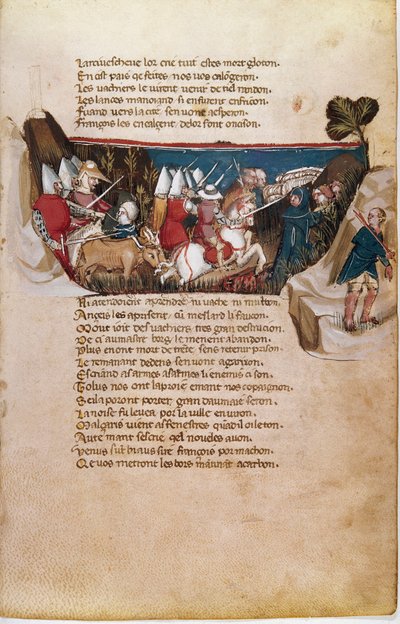 Larcivescheve lor crie tuit estes mort gloton.
En cist pais qe feites nos vos calongeron.
Les vachiers le virent venir de tel randon.
Les lances manoiand si enfuient enfricon.
Fuiand vers la cite sen vont a esperon.
François les encalcent delor font oncison.
Ni atendoient aprendre ni vache ni multon.
Ançeis les aprisent cū meslard li faucon.
Mout i oit des vachiers tres gran destrucion.
De ci au maistre borg le menent abandon.
Plus en ont mort de trēte sens retenir prison.
Le remanant dedens sen vont a garison.
Escriand as armes as armes li enemis ci son.
Tolus nos ont la proie e mant nos copagnon.
Se il a poront porter gran daumaie seron.
La noise fu levea por la ville en viron.
Malçaris vient as fenestres qua doil oileton.
Aute mant sescrie qel noveles avon.
Venus sunt biaus sire françois por machon.
Qe vos metront les bors